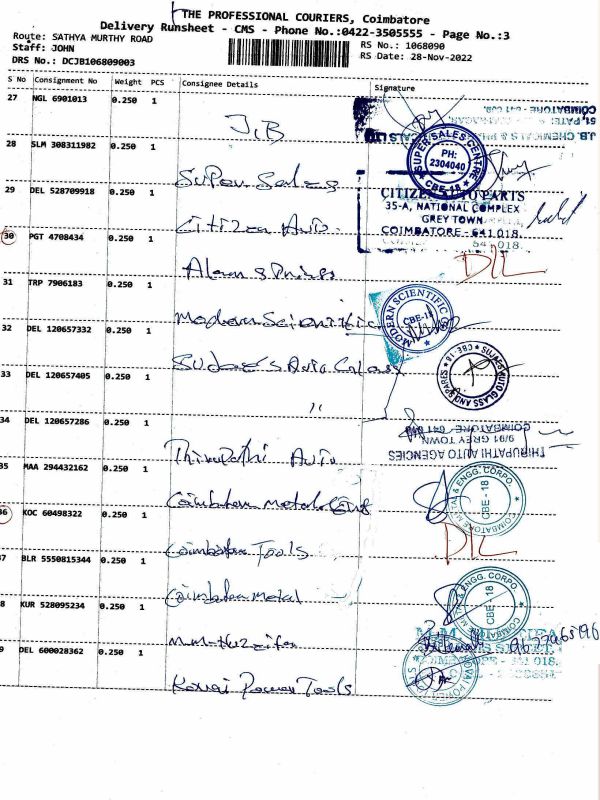 THE PROFESSIONAL COURIERS, Coimbatore
Delivery Runsheet - CMS - Phone No.:0422-3505555 - Page No.:3
Route: SATHYA MURTHY ROAD
Staff: JOHN
DRS No.: DCJB106809003
RS No.: 1068090
RS Date: 28-Nov-2022
S No Consignment No Weight PCS Consignee Details Signature
27 NGL 6901013 0.250 1 J.B
J.B. CHEMICALS
COIMBATORE - 641
28 SLM 308311982 0.250 1 Super Sales
SUPER SALES CENTRE
PH:
2304040
CBE-18
29 DEL 528709918 0.250 1 Citizen Auto
CITIZEN AUTO PARTS
35-A, NATIONAL COMPLEX
GREY TOWN
COIMBATORE - 641 018.
641 018.
30 PGT 4708434 0.250 1
DIL
31 TRP 7906183 0.250 1 Modern Scientific
MODERN SCIENTIFIC
CBE-18
32 DEL 120657332 0.250 1 Sujae's Auto Glass
SUJAES AUTO GLASS AND SPARES
CBE-18
33 DEL 120657405 0.250 1 "
34 DEL 120657286 0.250 1 Thirupathi Auto
THIRUPATHI AUTO AGENCIES
9/91 GREY TOWN
COIMBATORE - 641 018
35 MAA 294432162 0.250 1 Coimbatore Metal & Eng
COIMBATORE METAL & ENGG. CORPO.
CBE - 18
36 KOC 60498322 0.250 1 Coimbatore Tools
DIL
7 BLR 5550815344 0.250 1 Coimbatore Metal
METAL & ENGG. CORPO
CBE - 18
8 KUR 528095234 0.250 1
COIMBATORE - 641 018.
9 DEL 600028362 0.250 1 Kovai Power Tools
KOVAI POWER TOOLS